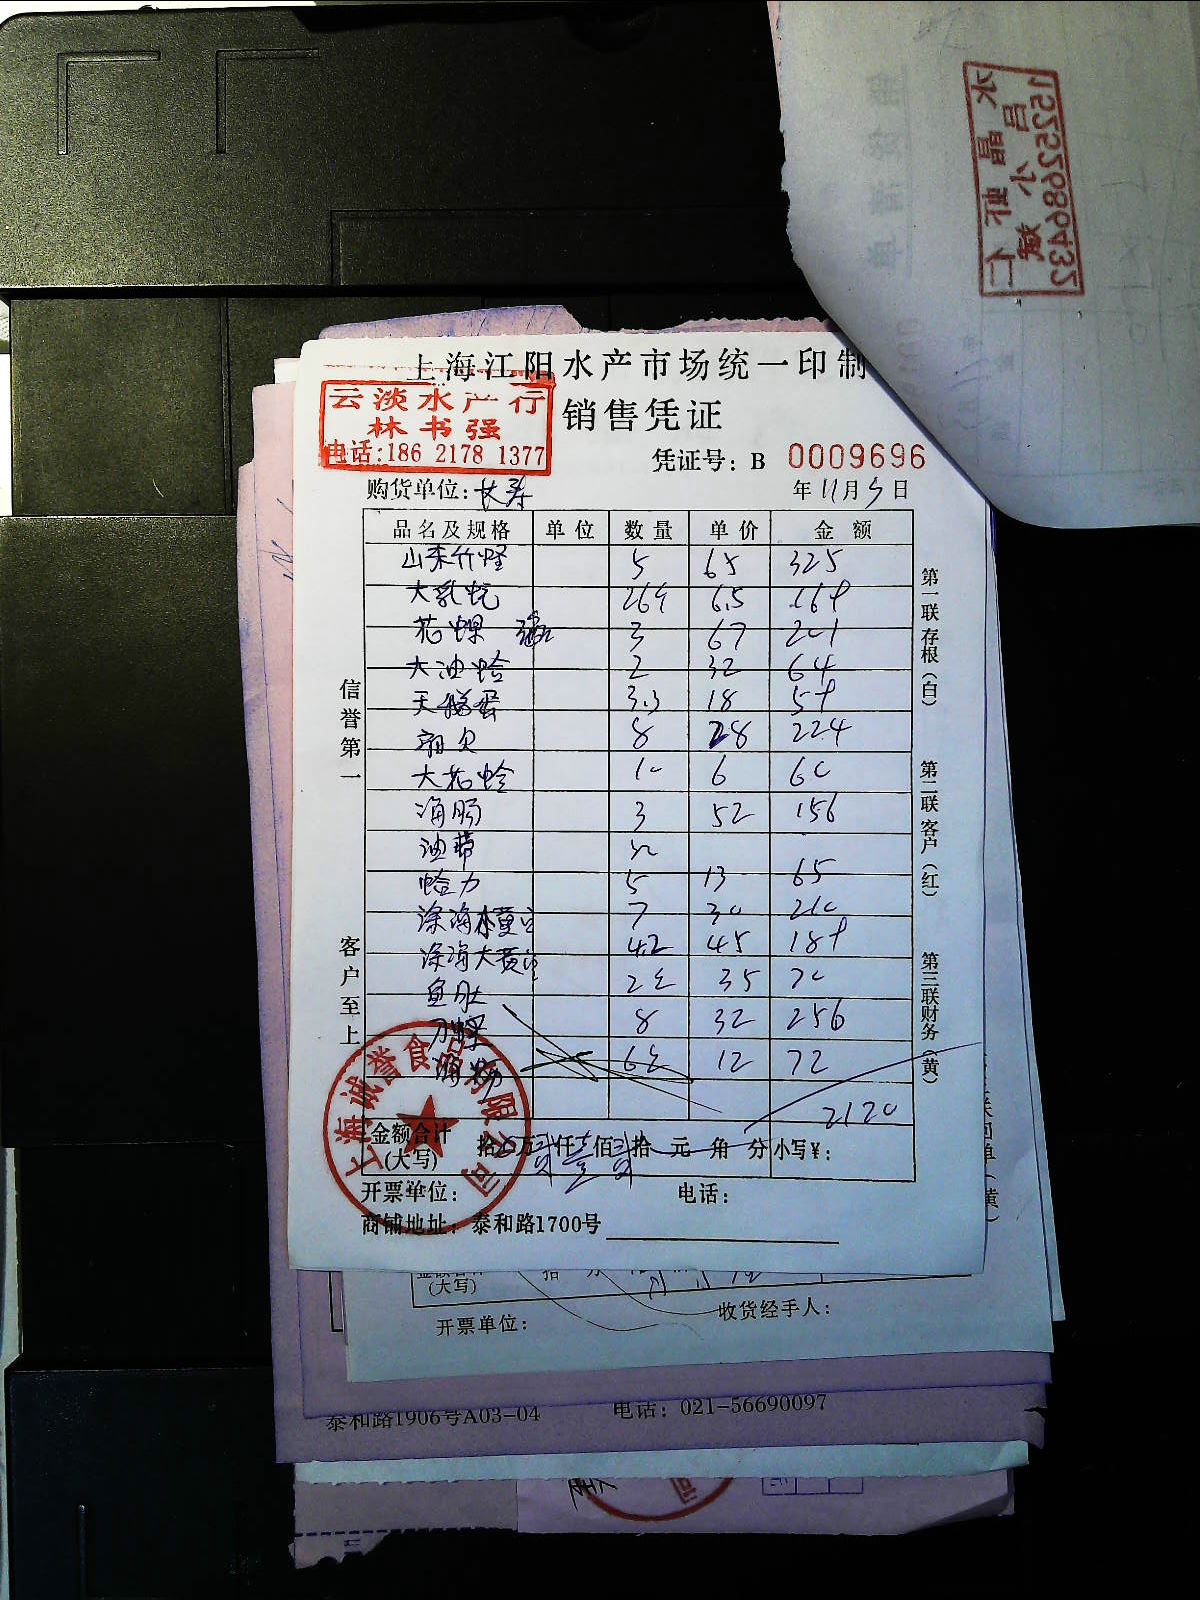 15225686432
水晶虾仁
吕小斌
上海江阳水产市场统一印制
云淡水产行
林书强
电话:186 2178 1377
销售凭证
凭证号: B 0009696
购货单位: 长寿
年 11月 5日
品名及规格 单位 数量 单价 金额
山东竹蛏 5 65 325
大乳蚝 6.5
花螺 3 67 201
大油蛤 2 32 64
天鹅蛋 3.3 18 59
8 28 224
大花蛤 10 6 60
海肠 3 52 156
油带
蛤力 5 13 65
深海 7 30 210
深海大黄 4.2 45 189
鱼肚 2 35 70
8 32 256
6 12 72
2120
金额合计(大写) 拾 万贰仟壹佰贰拾 元 角 分 小写¥:
开票单位: 电话:
商铺地址: 泰和路1700号
信誉第一
客户至上
第一联存根(白)
第二联客户(红)
第三联财务(黄)
上海诚誉食品有限公司
(大写)
开票单位:
收货经手人:
泰和路1906号A03-04 电话: 021-56690097